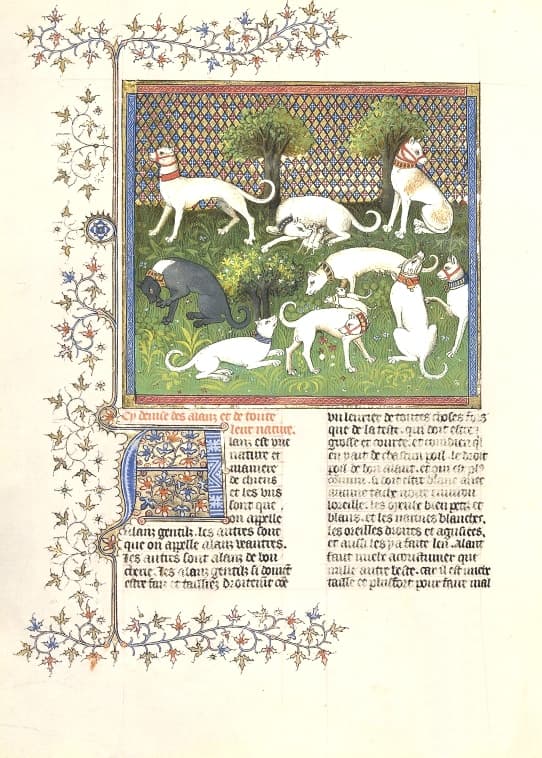 Cy devise des alanz et de toute
leur nature.
Alanz est une
nature et
maniere
de chiens
et les uns
sont que
on appelle
alanz gentilz. les autres sont
que on appelle alanz veautres.
Les autres sont alanz de bou
cherie. Les alanz gentilz si doivent
estre faiz et tailliez droitement co
un levrier de toutes choses fors
que de la teste. qui doit estre
grosse et courte. et combien quil
en y ait de chascun poil. le droit
poil de bon alant. et qui est plus
commun. si doit estre blanc avec
aucune tache noire environ
loreille. les yeulz bien petiz et
blans. et les narines blanches.
les oreilles droites et aguisees,
et aussi les y a fait len. alant
faut mielz acoustumer que
nulle autre beste. car il est mielz
taille et plus fort pour faire mal